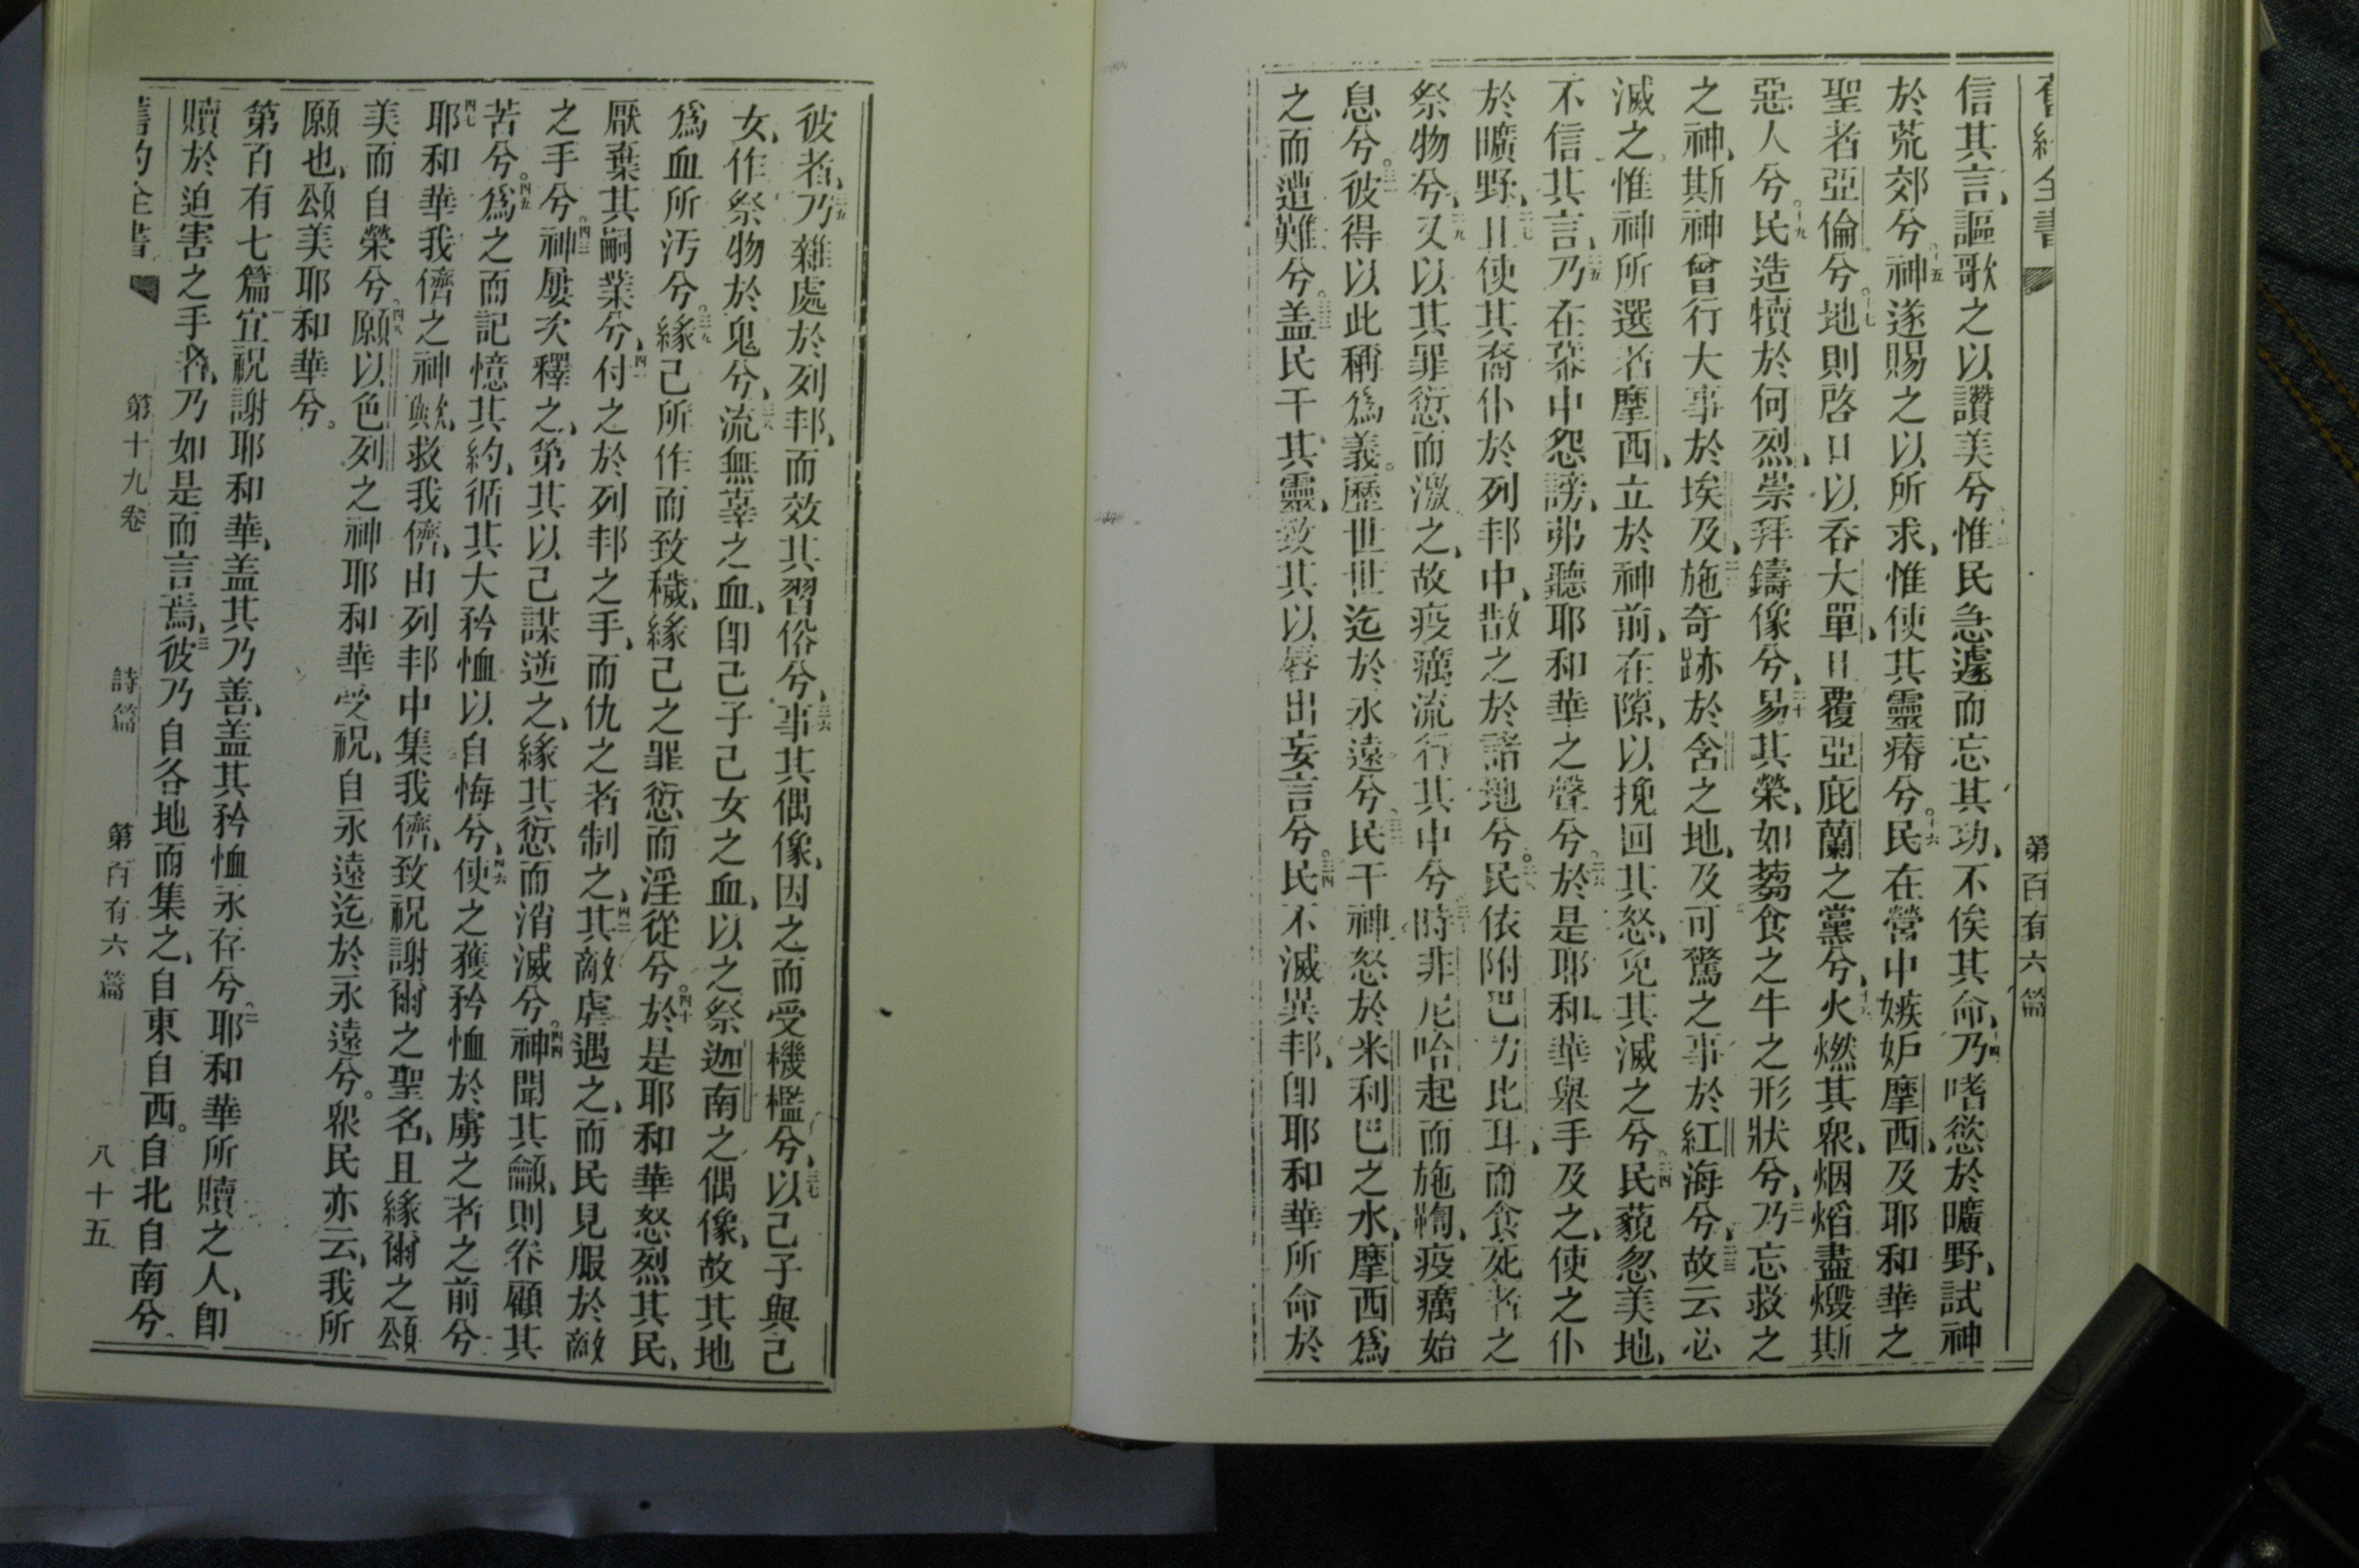 舊約全書
第百有六篇
信其言、謳歌之以讚美兮、惟民急遽而忘其功、不俟其命、乃嗜慾於曠野、試神
於荒郊兮、神遂賜之以所求、惟使其靈瘠兮。民在營中嫉妒摩西、及耶和華之
聖者亞倫兮。地則啓口以吞大單、且覆亞庇蘭之黨兮、火燃其衆、烟熖盡燬斯
惡人兮。民造犢於何烈、崇拜鑄像兮、易其榮、如芻食之牛之形狀兮、乃忘救之
之神、斯神曾行大事於埃及、施奇跡於含之地、及可驚之事於紅海兮、故云必
滅之、惟神所選者摩西、立於神前、在隙、以挽回其怒、免其滅之兮。民藐忽美地、
不信其言、乃在幕中怨謗、弗聽耶和華之聲兮、於是耶和華舉手及之、使之仆
於曠野、且使其裔仆於列邦中、散之於諸地兮。民依附巴力比耳、而食死者之
祭物兮、又以其罪愆而激之、故疫癘流行其中兮、時非尼哈起而施鞫、疫癘始
息兮。彼得以此稱爲義。歷世世迄於永遠兮、民干神怒於米利巴之水、摩西爲
之而遭難兮。盖民干其靈、致其以唇出妄言兮。民不滅異邦、卽耶和華所命於
彼者、乃雜處於列邦、而效其習俗兮、事其偶像、因之而受機檻兮、以己子與己
女、作祭物於鬼兮、流無辜之血、卽己子己女之血、以之祭迦南之偶像、故其地
爲血所汚兮。緣己所作而致穢、緣己之罪愆而淫從兮。於是耶和華怒烈其民、
厭棄其嗣業兮、付之於列邦之手、而仇之者制之、其敵虐遇之、而民見服於敵
之手兮。神屢次釋之、第其以己謀逆之、緣其愆而消滅兮。神聞其籲、則眷顧其
苦兮。爲之而記憶其約、循其大矜恤以自悔兮、使之獲矜恤於虜之者之前兮
耶和華我儕之神歟、救我儕、由列邦中集我儕、致祝謝爾之聖名、且緣爾之頌
美而自榮兮。願以色列之神耶和華受祝、自永遠迄於永遠兮。衆民亦云、我所
願也、頌美耶和華兮。
第百有七篇 宜祝謝耶和華、盖其乃善、盖其矜恤永存兮、耶和華所贖之人、卽
贖於迫害之手者、乃如是而言焉、彼乃自各地而集之、自東自西。自北自南兮
舊約全書 第十九卷 詩篇 第百有六篇 八十五